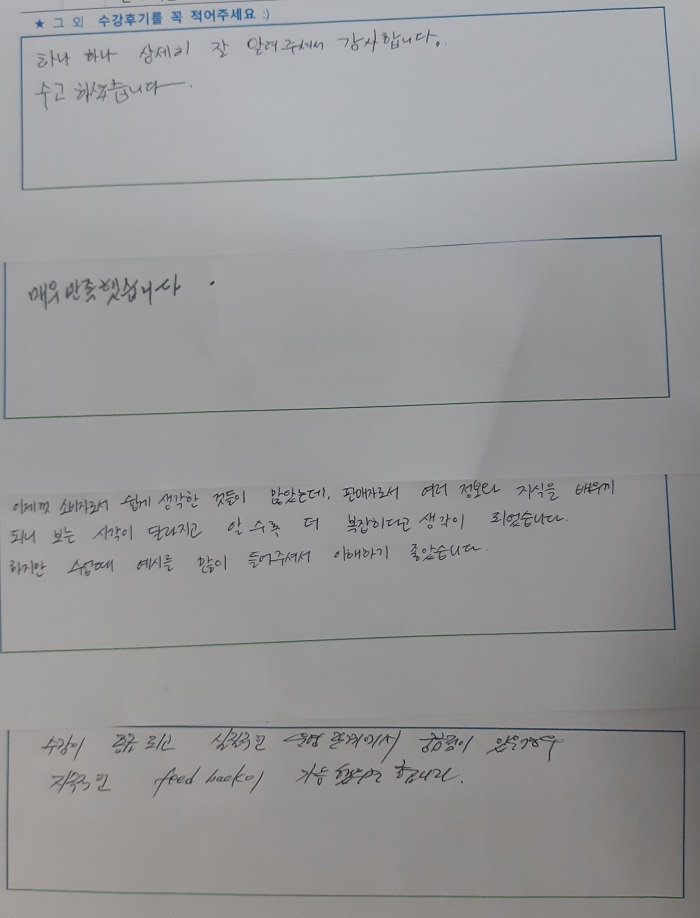 ★ 그 외 수강후기를 꼭 적어주세요 :)
하나 하나 상세히 잘 알려주셔서 감사합니다.
수고 하셨습니다.
매우만족했습니다.
이제껏 소비자로서 쉽게 생각한 것들이 많았는데, 판매자로서 여러 정보와 지식을 배우게
되니 보는 시각이 달라지고 알 수록 더 복잡하다고 생각이 되었습니다.
하지만 수업때 예시를 많이 들어주셔서 이해하기 좋았습니다.
수강이 종료 되고 실질적인 운영 단계에서 궁금점이 있을경우
지속적인 feed back이 가능 했으면 합니다.